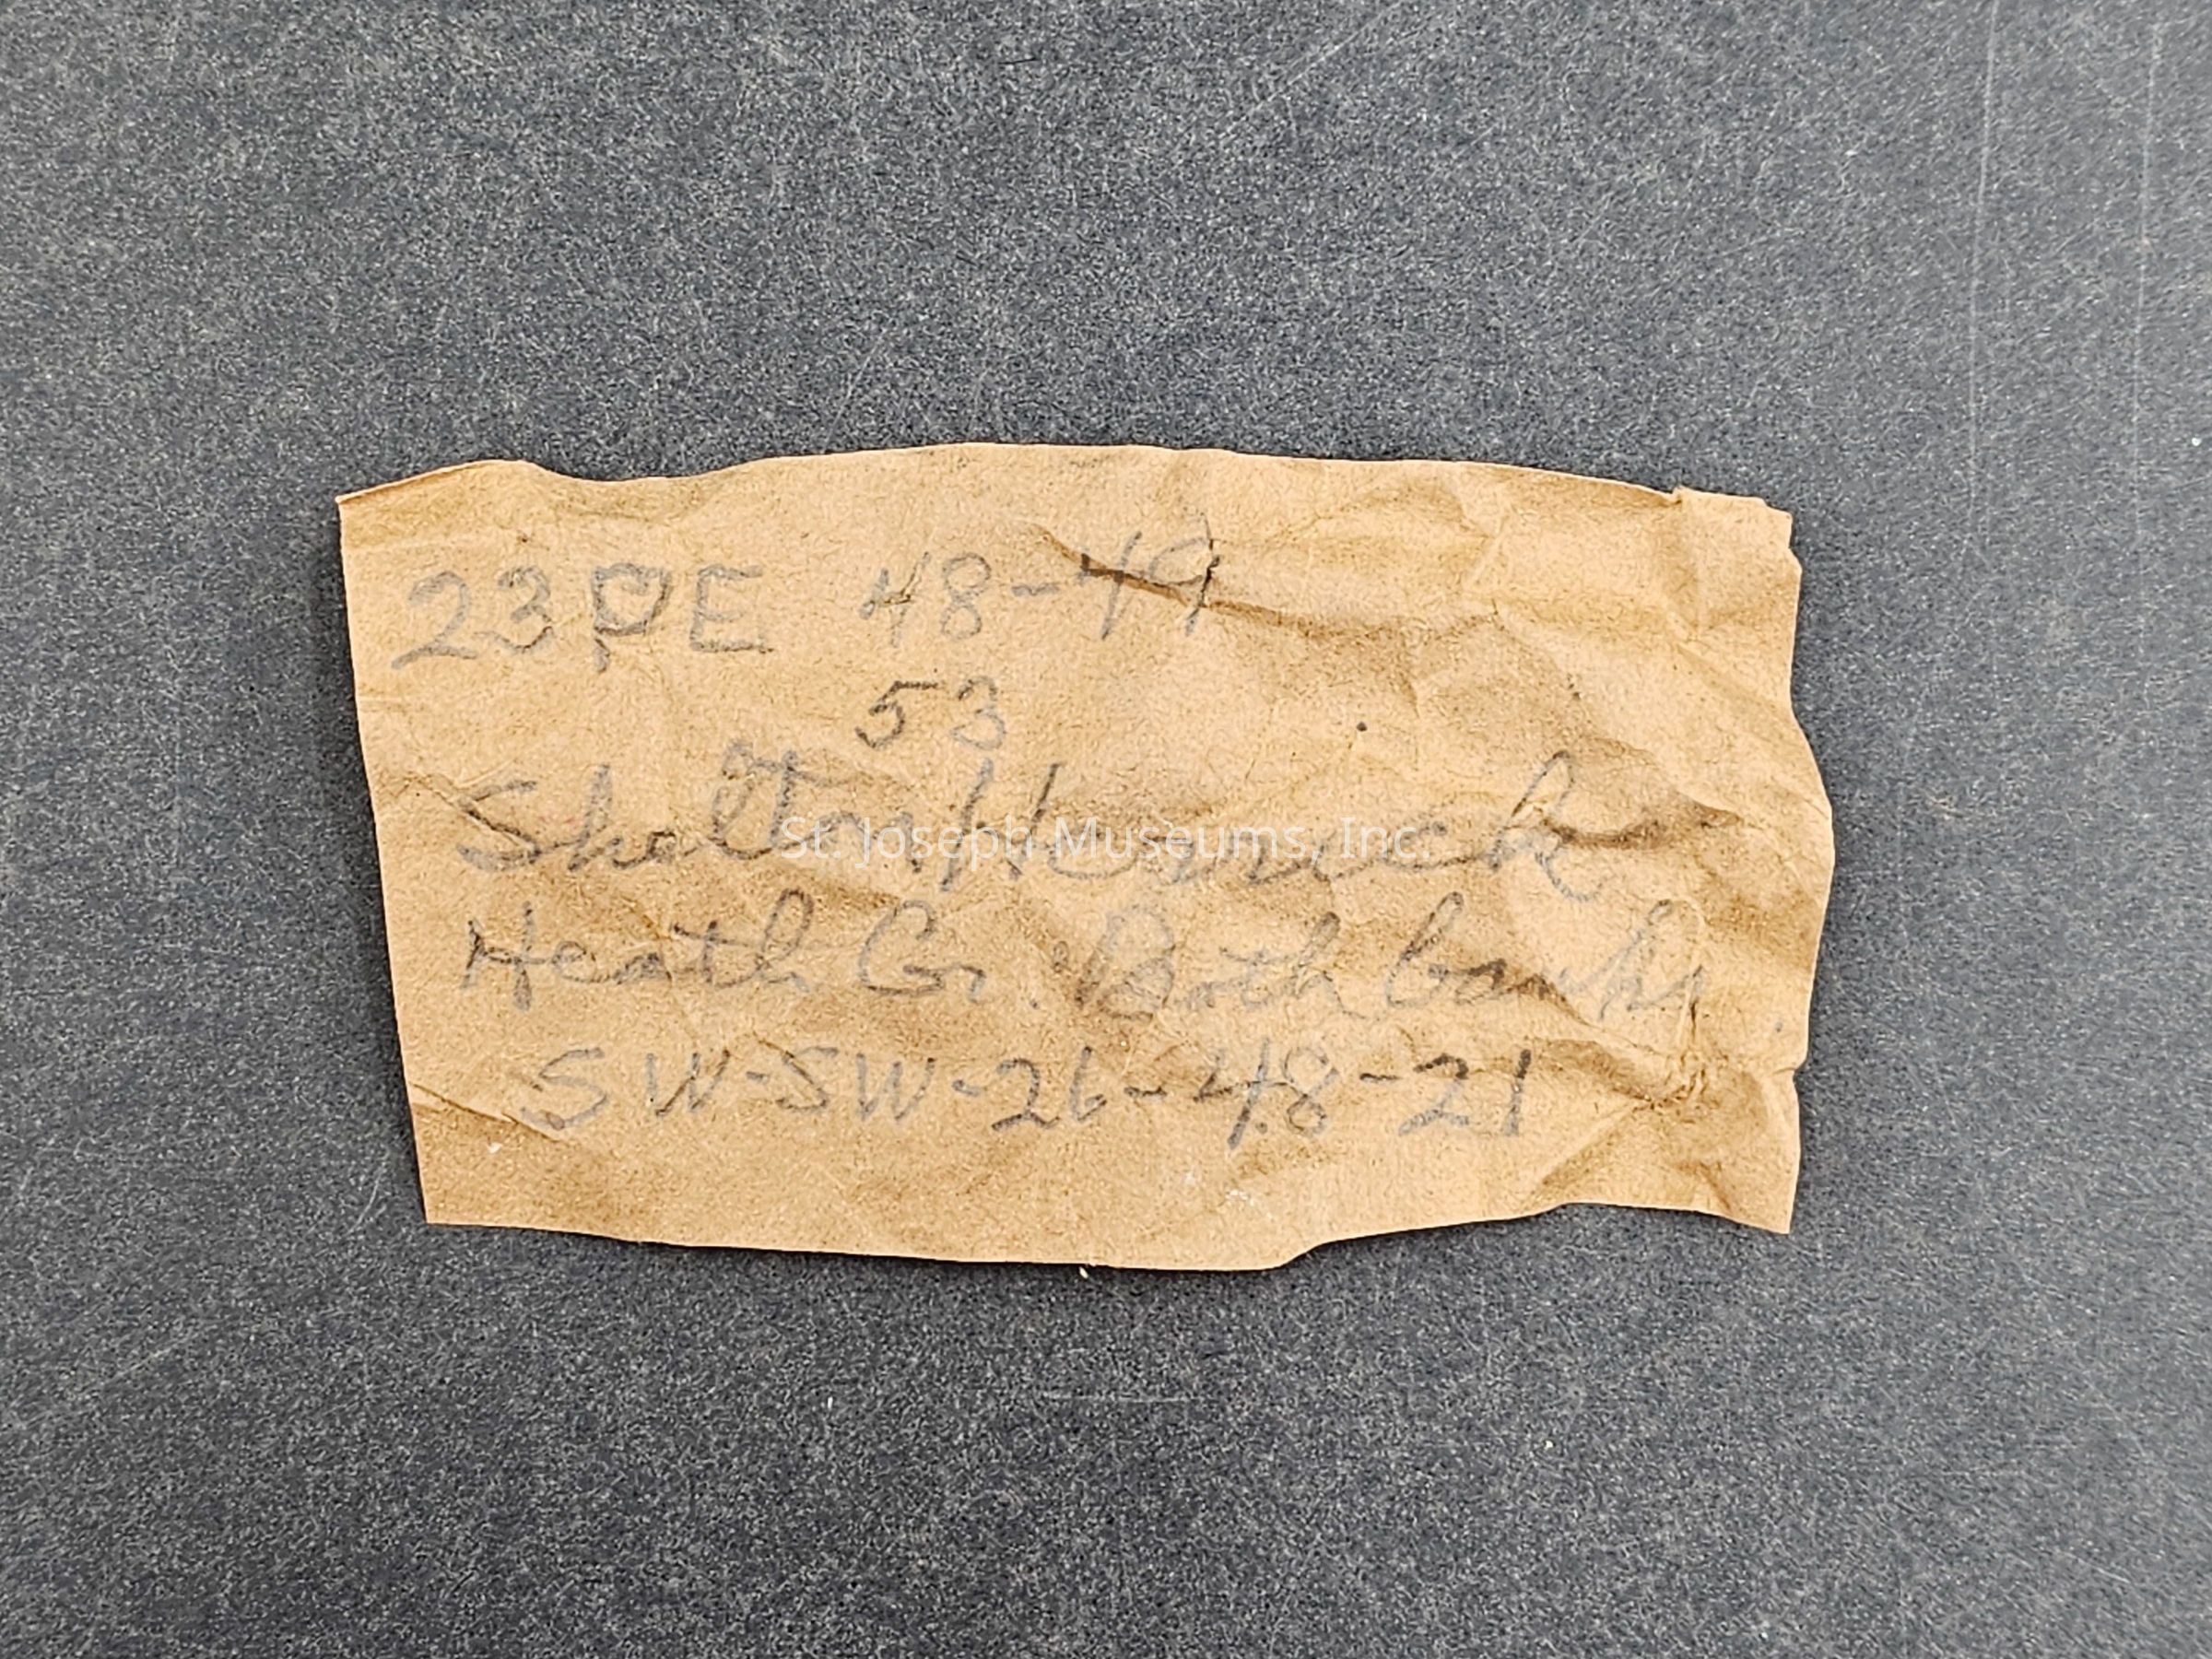 23PE 48-49
53
Shelton Herrick
Heath Cr. Both banks
SW-SW-26-48-21
St. Joseph Museums, Inc.